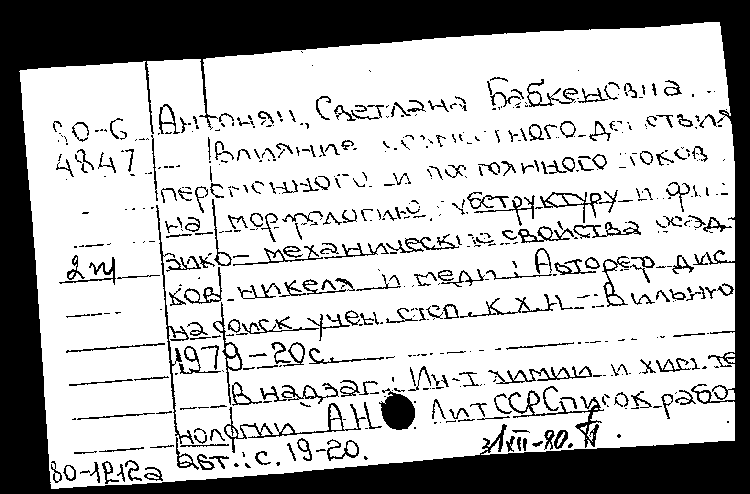 80-6 Антонян, Светлана Бабкеновна.
4847 Влияние совместного действия
переменного и постоянного токов
на морфологию, субструктуру и фи-
зико-механические свойства осад-
2 м ков никеля и меди: Автореф. дис
на соиск. учен. степ. к.х.н - Вильнюс
1979 - 20с.
В надзаг.: Ин-т химии и хим. те
нологии АН ЛитССР Список работ
авт.: с. 19-20.
80-1212а 21/XII-80.